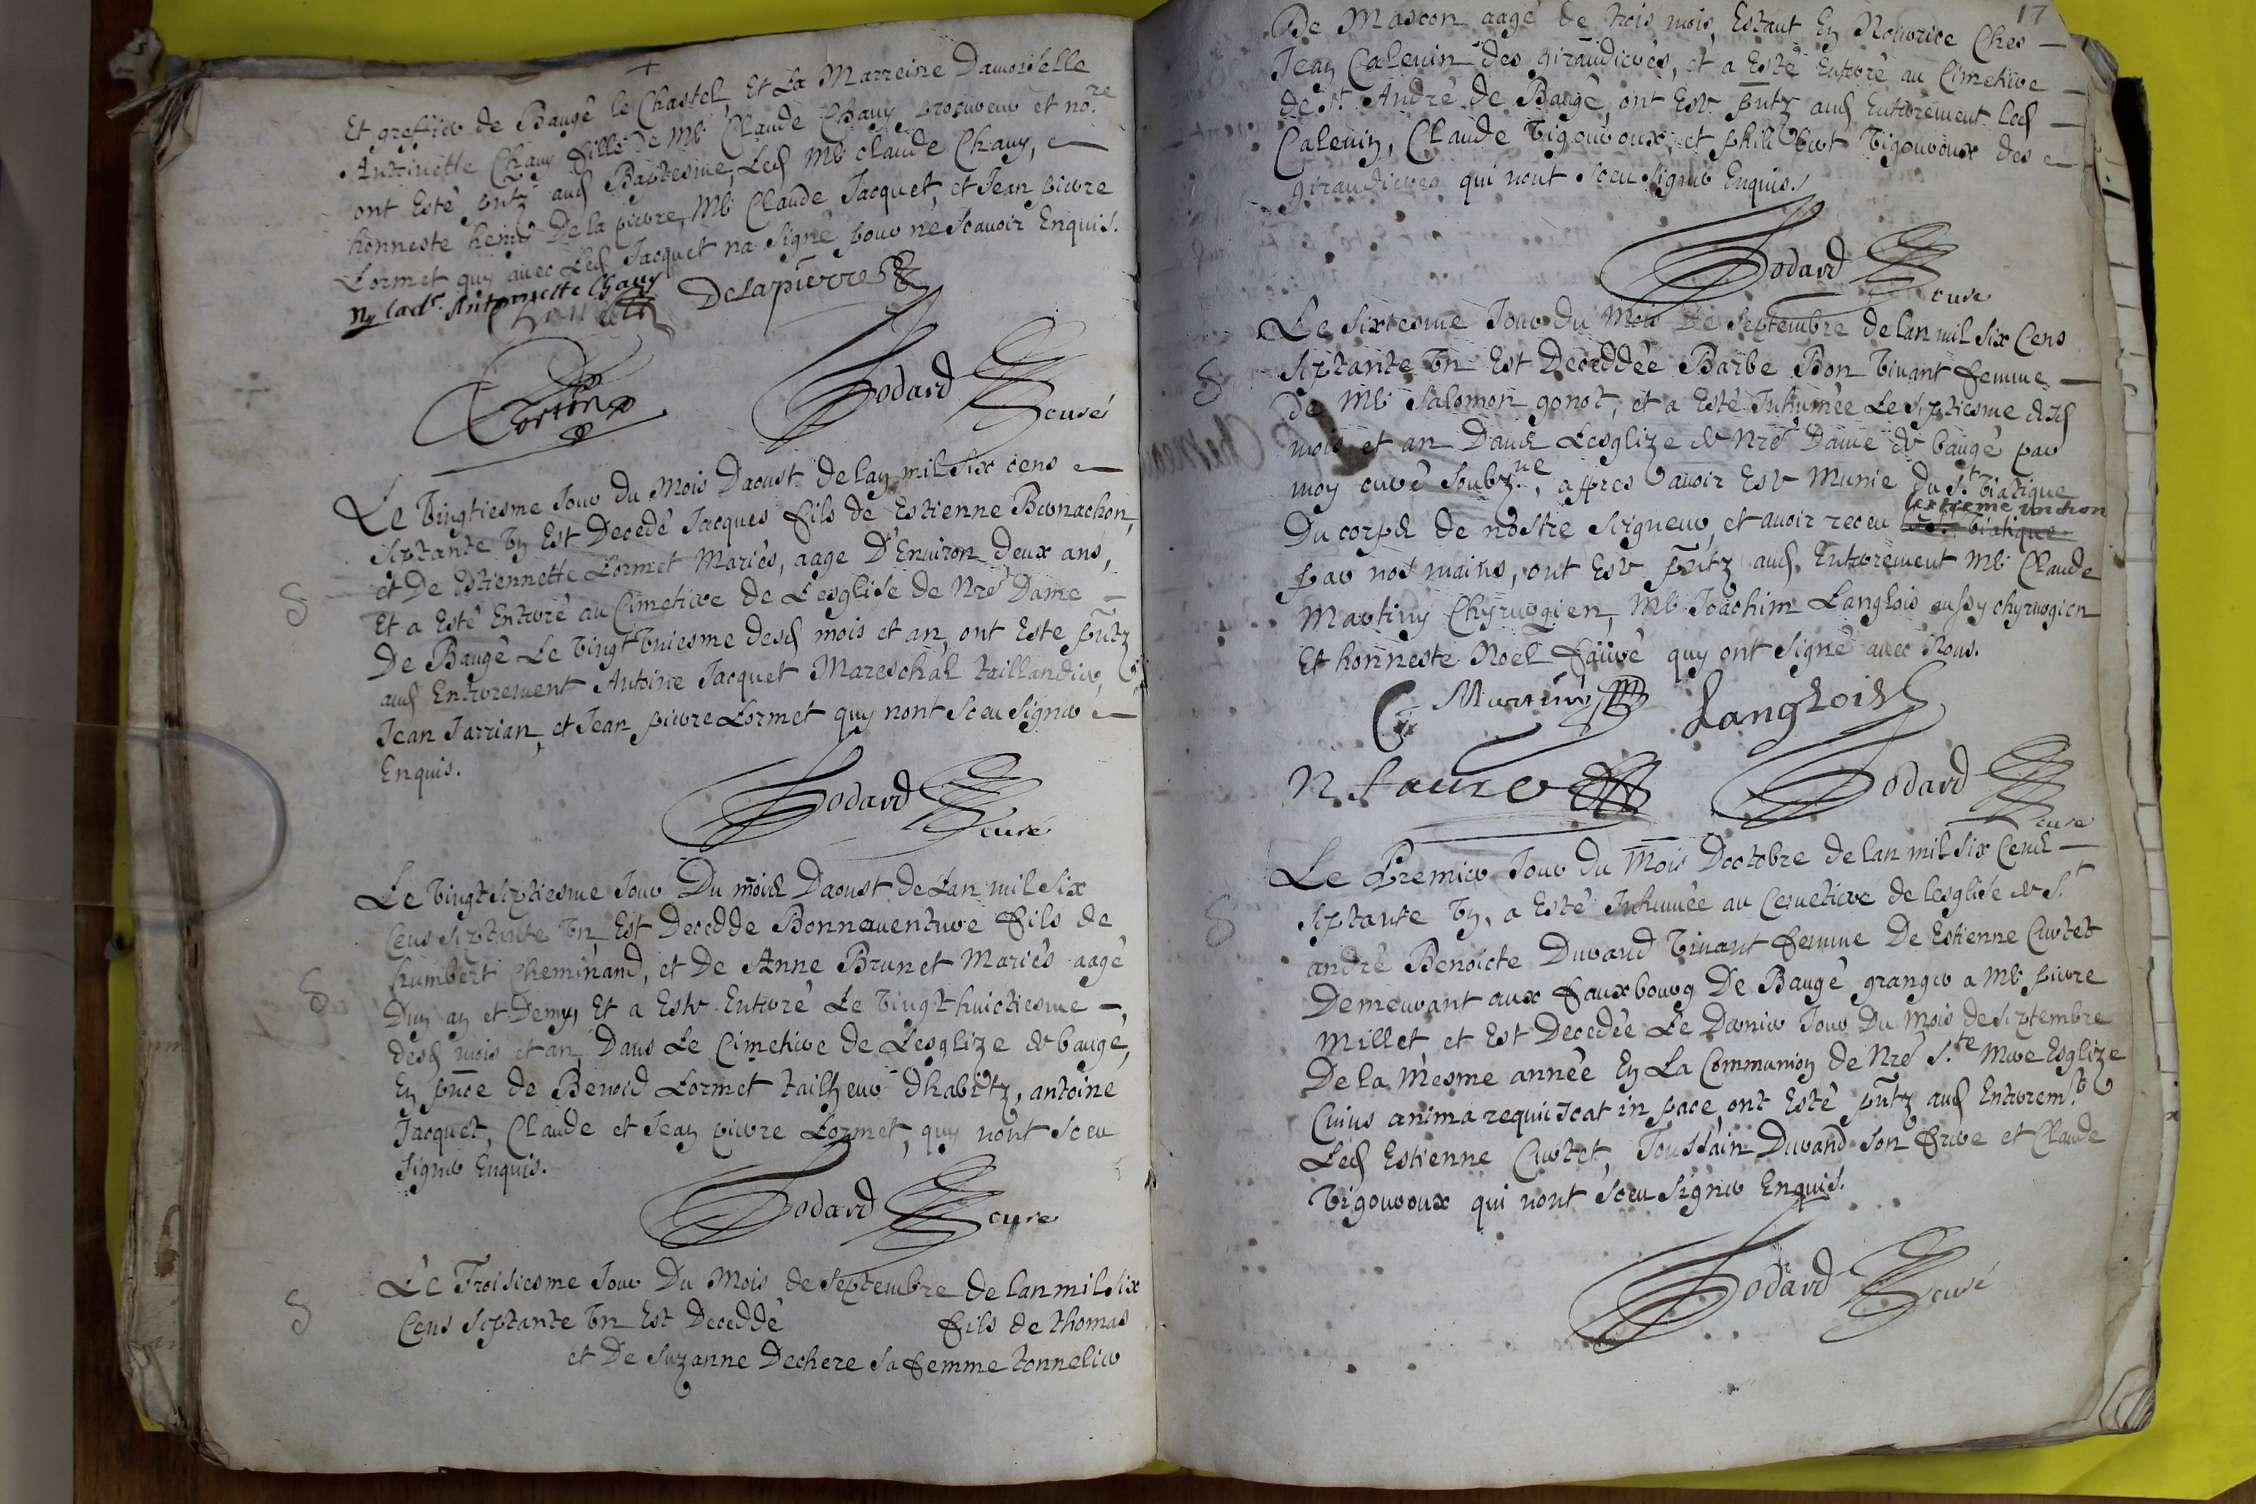 Et greffier de Baugé le Chastel, Et La Marreine Damoiselle
Antoinette Chavy fille de Me Claude Chavy procureur et nore
ont Esté pntz aud Baptesme, Led Me Claude Chavy,
honneste henry De la pierre, Me Claude Jacquet, et Jean pierre
Lormet quy avec Led Jacquet na signé pour ne scavoir Enquis.
Ny lade Antoinette Chavy
Delapierre
Godard curé
Le vingtiesme Jour du Mois Daoust de lan mil six cens
septante un Est Decedé Jacques fils de Estienne Bernachon,
et De Estiennette Lormet Mariés, aage D'Environ deux ans,
Et a Esté Enterré au Cimetiere de L'esglise de Nre Dame
De Baugé Le vingt uniesme desd mois et an, ont Este pntz
aud Enterrement Antoine Jacquet Mareschal taillandier,
Jean Jarrian, et Jean pierre Lormet quy nont sceu signer
Enquis.
Godard curé
Le vingt septiesme Jour Du mois Daoust de Lan mil six
Cens septante un Est Decedde Bonnaventure fils de
humbert Cheminand, et De Anne Brunet Mariés aagé
Dun an et Demy, Et a Esté Enterré Le vingt huictiesme
desd mois et an Dans Le Cimetiere de Lesglize de baugé,
En pnce de Benoid Lormet tailheur dhabitz, antoine
Jacquet, Claude et Jean pierre Lormet, quy nont sceu
signer Enquis.
Godard curé
Le Troisiesme Jour Du Mois de septembre de lan mil six
Cens septante un Est Deceddé fils de thomas
et De suzanne Dechere sa femme tonnelier
17
De Mascon aagé de trois mois, Estant En Nourice Ches
Jean Calevin des giraudieres, et a Esté Enterré au Cimetiere
de St André de Baugé, ont Esté pntz aud Enterrement Led
Calevin, Claude Vigouroux, et philibert Vigouroux des
giraudieres qui nont sceu signer Enquis.
Godard curé
Le sixiesme Jour du Mois De septembre de lan mil six Cens
septante un Est Deceddée Barbe Bon vivant femme
de Me Salomon gonot, et a Esté Inhumée Le septiesme desd
mois et an Dans Lesglize de Nre Dame de baugé par
moy curé soubzne, appres avoir Esté Munie du St viatique
Du corps de nostre seigneur, et avoir receu lextreme unction
par nos mains, ont Esté pntz aud Enterrement Me Claude
Martiny Chyrurgien, Me Joachim Langlois aussy chyrurgien
Et honneste Noel faivre quy ont signé avec Nous.
C Martiny Langlois
N faivre Godard curé
Le Premier Jour du Mois Doctobre de lan mil six Cens
septante un, a Esté Inhumée au Cemetiere de lesglise de St
andré Benoicte Durand vivant femme De Estienne Curtet
Demeurant aux fauxbourg De Baugé granger a Me pierre
Millet et Est Decedée Le Dernier Jour Du Mois de septembre
De la mesme année En La Communion de Nre Ste Mere Esglize
Cuius anima requiescat in pace, ont Esté pntz aud Enterremt
Led Estienne Curtet, Toussain Durand son frere et Claude
Vigouroux qui nont sceu signer Enquis.
Godard curé